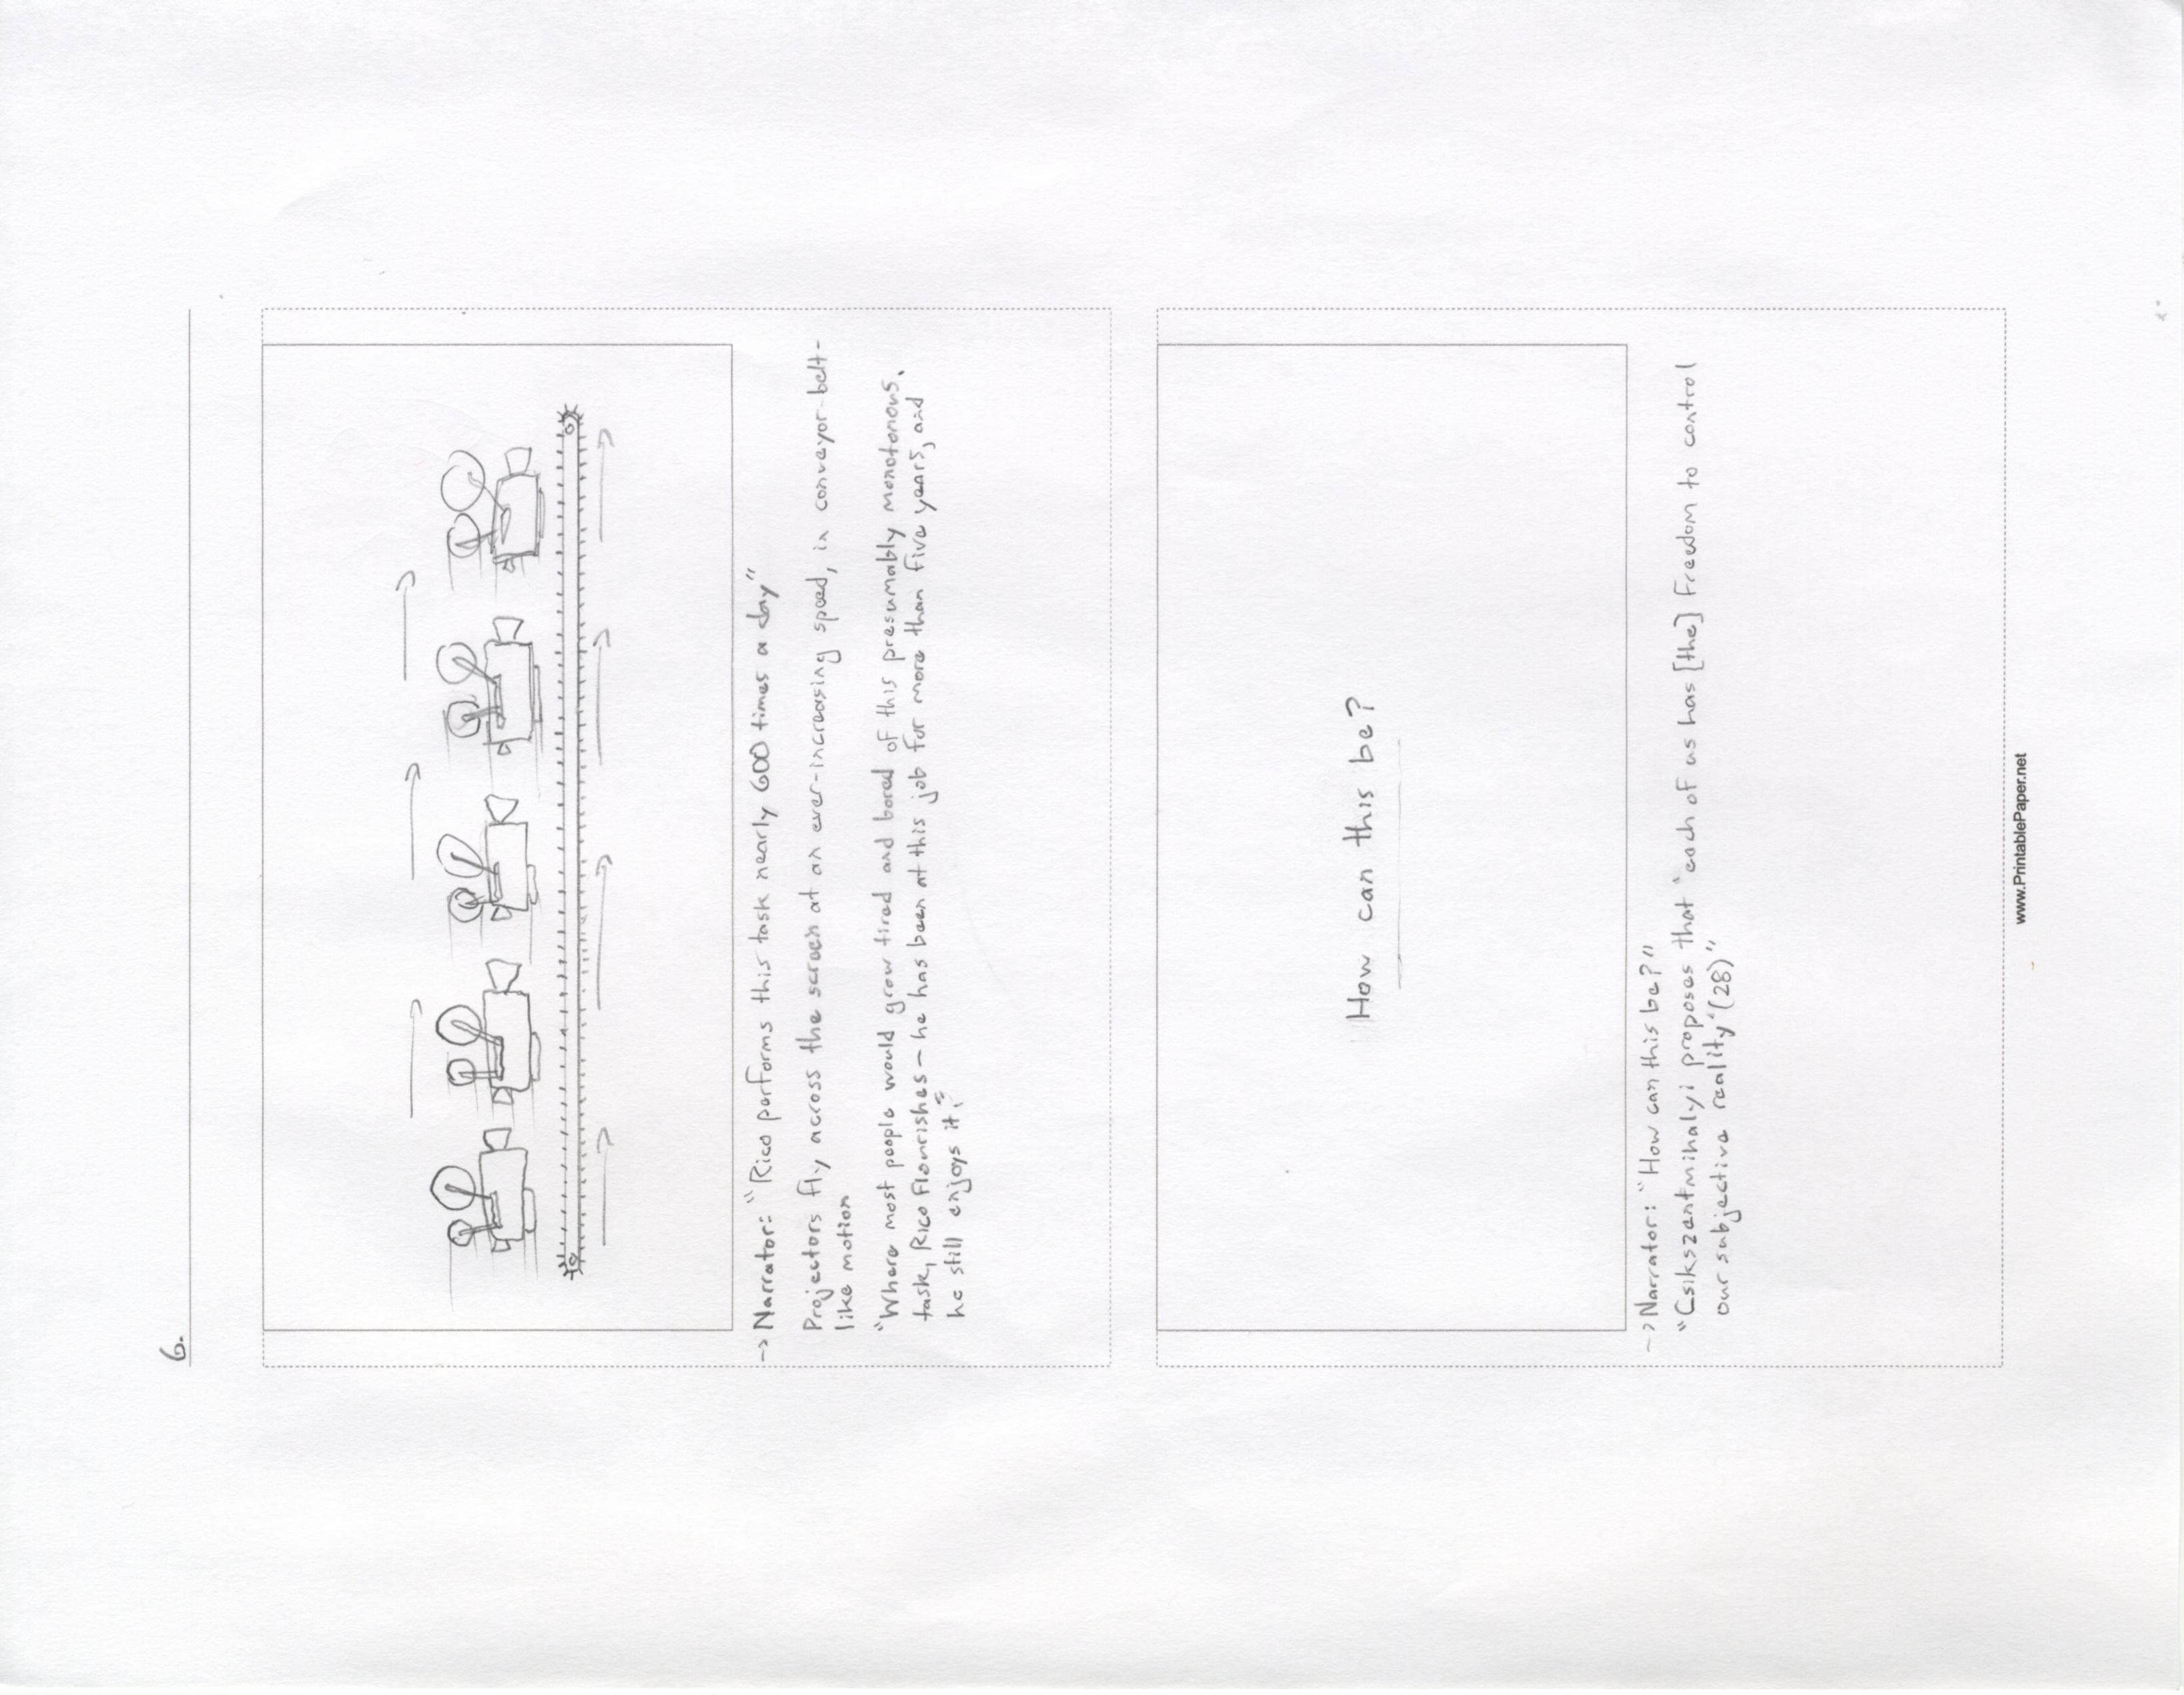 6.
-> Narrator: "Rico performs this task nearly 600 times a day"
Projectors fly across the screen at an ever-increasing speed, in conveyor-belt-
like motion
"Where most people would grow tired and bored of this presumably monotonous
task, Rico flourishes - he has been at this job for more than five years, and
he still enjoys it."
How can this be?
-> Narrator: "How can this be?"
"Csikszentmihalyi proposes that "each of us has [the] freedom to control
our subjective reality" (28)"
www.PrintablePaper.net